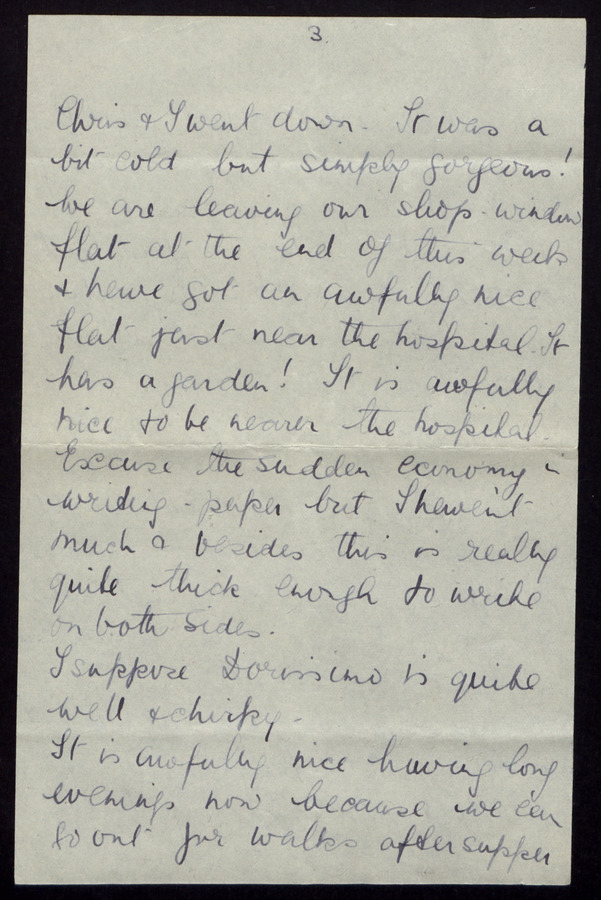 3.
Chris & I went down. It was a
bit cold but simply gorgeous!
We are leaving our shop-window
flat at the end of this week
& have got an awfully nice
flat just near the hospital. It
has a garden! It is awfully
nice to be nearer the hospital.
Excuse the sudden economy in
writing-paper but I haven't
much & besides this is really
quite thick enough to write
on both sides.
I suppose Dorissimo is quite
well & chirpy.
It is awfully nice having long
evenings now because we can
go out for walks after supper